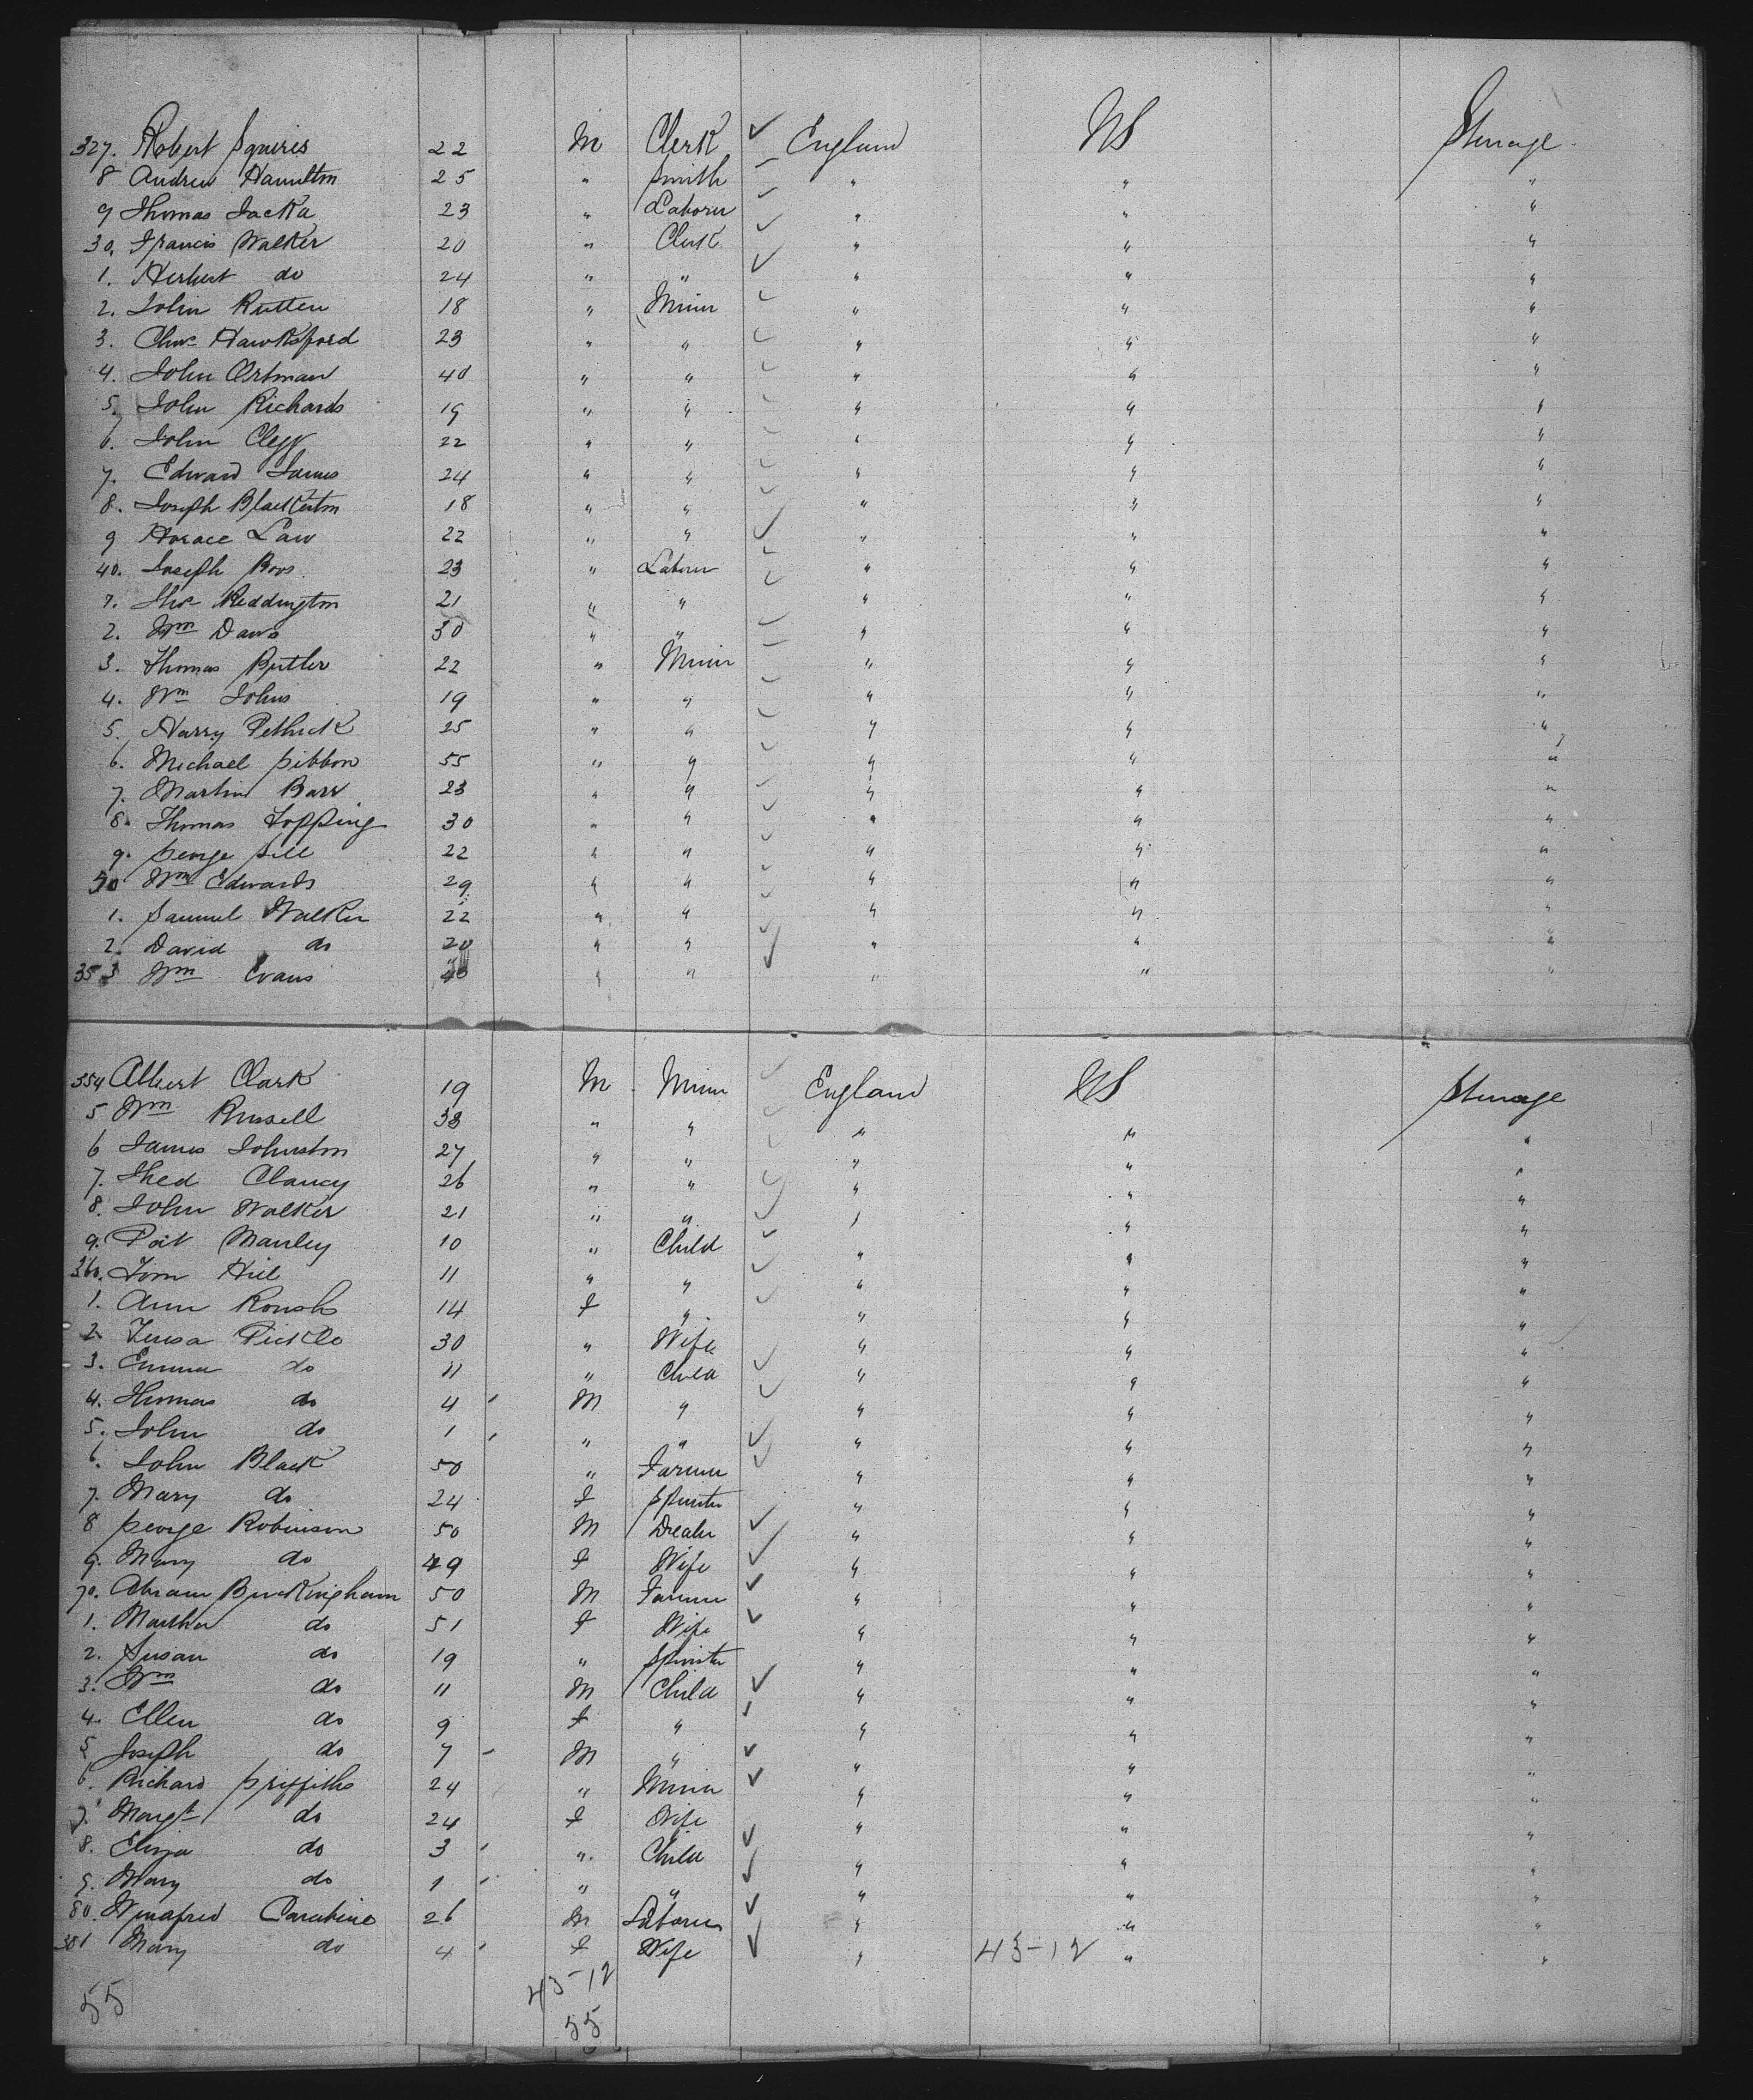 327. Robert Squires 22 M Clerk England US Steerage
8 Andrew Hamilton 25 " Smith " " "
9 Thomas Jacka 23 " Laborer " " "
30. Francis Walker 20 " Clerk " " "
1. Herbert do 24 " " " " "
2. John Rutten 18 " Miner " " "
3. Chas Hawksford 23 " " " " "
4. John Ortman 40 " " " " "
5. John Richards 19 " " " " "
6. John Clegg 22 " " " " "
7. Edward James 24 " " " " "
8. Joseph Blackerton 18 " " " " "
9 Horace Law 22 " " " " "
40. Joseph Boos 23 " Laborer " " "
1. Thos Reddington 21 " " " " "
2. Wm Daws 30 " " " " "
3. Thomas Butler 22 " Miner " " "
4. Wm Johns 19 " " " " "
5. Harry Pethick 25 " " " " "
6. Michael Gibbon 55 " " " " "
7. Martin Barr 23 " " " " "
8. Thomas Topping 30 " " " " "
9. George Gill 22 " " " " "
50 Wm Edwards 29 " " " " "
1. Samuel Walker 22 " " " " "
2. David do 20 " " " " "
353 Wm Evans 40 " " " " "
354 Albert Clark 19 M Miner England US Steerage
5 Wm Russell 38 " " " " "
6 James Johnston 27 " " " " "
7. Thed Clancy 26 " " " " "
8. John Walker 21 " " " " "
9. Pat Manley 10 " Child " " "
360. Tom Hill 11 " " " " "
1. Ann 14 F " " " "
2. Teresa Pickles 30 " Wife " " "
3. Emma do 11 " Child " " "
4. Thomas do 4 M " " " "
5. John do 1 " " " " "
6. John Black 50 " Farmer " " "
7. Mary do 24 F Spinster " " "
8 George Robinson 50 M Dealer " " "
9. Mary do 49 F Wife " " "
70. Abram Buckingham 50 M Farmer " " "
1. Martha do 51 F Wife " " "
2. Susan do 19 " Spinster " " "
3. Wm do 11 M Child " " "
4. Ellen do 9 F " " " "
5 Joseph do 7 M " " " "
6. Richard Griffiths 24 " Miner " " "
7. Margt do 24 F Wife " " "
8. Eliza do 3 " Child " " "
9. Mary do 1 " " " " "
80. Winafred Carabine 26 M Laborer " " "
381 Mary do 4 F Wife " 43-12 " "
55 43-12
55